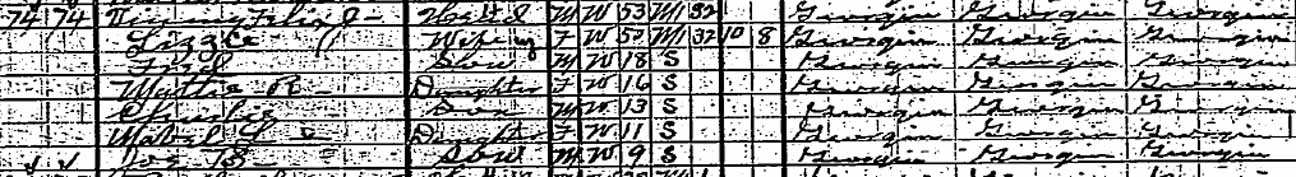 74 74 Head M W 53 M1 32 Georgia Georgia Georgia
Lizzie Wife F W 52 M1 32 10 8 Georgia Georgia Georgia
Fred Son M W 18 S Georgia Georgia Georgia
Mattie R Daughter F W 16 S Georgia Georgia Georgia
Charlie Son M W 13 S Georgia Georgia Georgia
Mabel L Daughter F W 11 S Georgia Georgia Georgia
Joe B Son M W 9 S Georgia Georgia Georgia